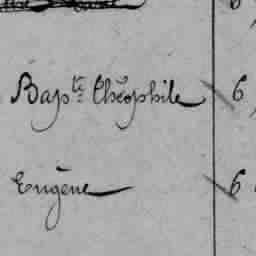 Bapte Théophile 6
Eugène 6